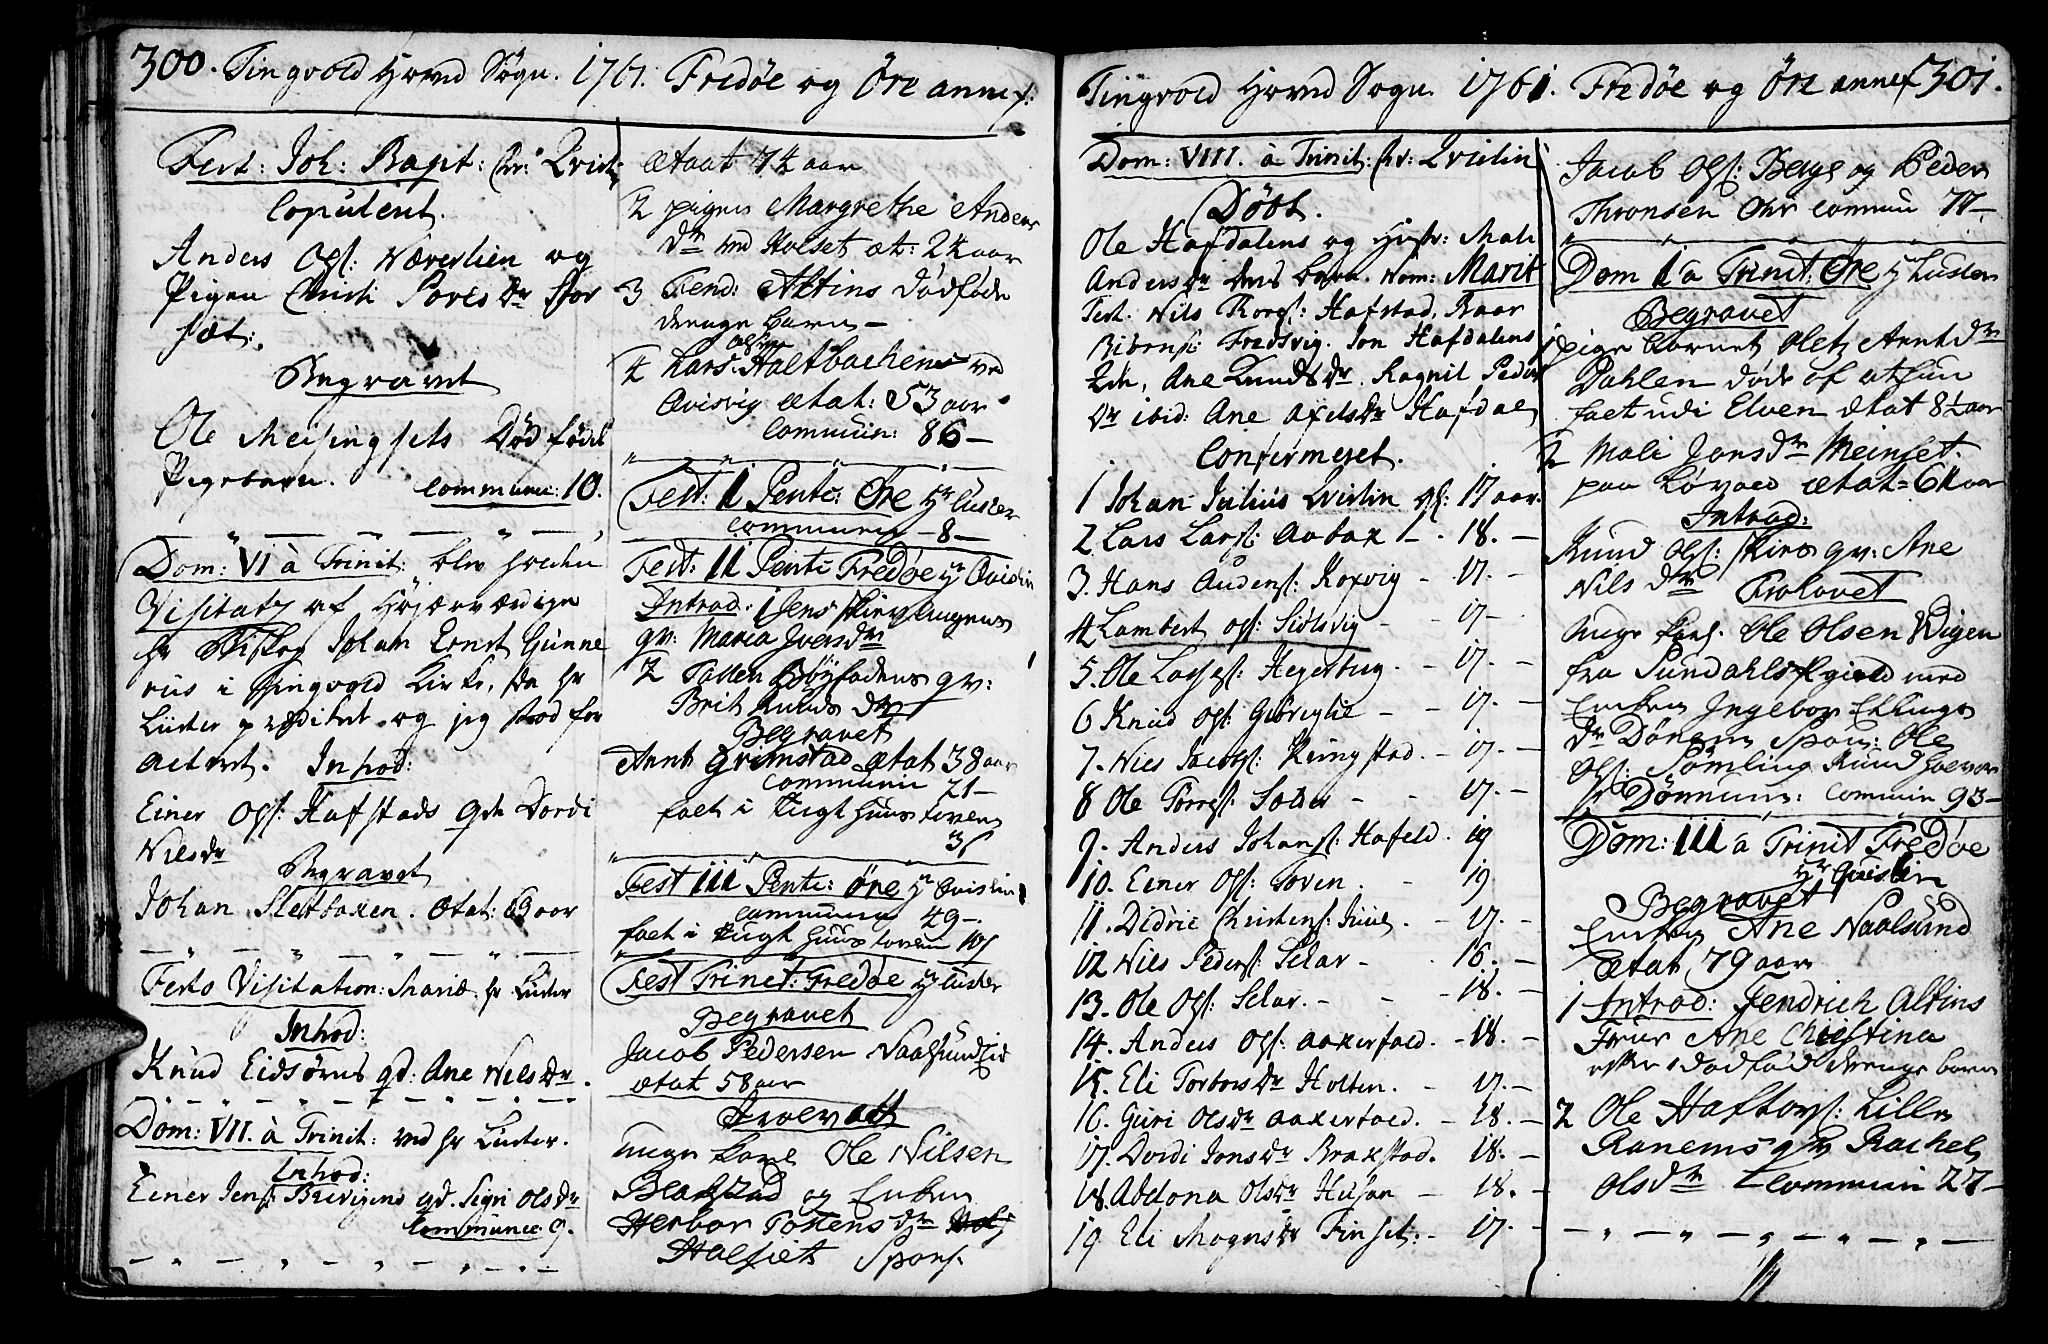 300. Tingvold Hoved Sogn. 1761. Fredøe og Øre annex:
Fest: Joh: Bapt: hr: Qvist:
Copulent.
Anders Ols: Næverlien og
Pigen Chirsti Poves Dr Stor
sæt:
Begravet
Ole Meisingsets Dødfødt
Pigebarn. Commune: 10.
Dom: VI à Trinit: blev holden
Visitatz af Høyærværdige
hr Biskop Johan Ernst Gunne
rus i Tingvold Kirke, da hr
Lüster prædiket og jeg stod for
alteret. Introd:
Einer Ols: Hafstads qde Dordi
Nilsdr
Begravet
Johan Sletbaken. Ætat: 69 aar
Festo Visitation: Mariæ hr Lüster
Introd:
Knud Eidsørus qd: Ane Nilsdr.
Dom: VII. à Trinit: ved hr Lüster.
Introd:
Einer Jens: Brevigens qd. Sigri Olsdr
Commune 9.
ætaat 74 aar
2 pigen Margrethe Anders
dr ved Holset æt: 24 aar
3 Fend: Altins dødføde
drenge barn –
4 Lars Olsen Haltbachens ved
Qvisvig ætat: 53 aar
Commun: 86 –
Fest: I Pente: Øre Hr Lüster
Communi – 8 –
Fest: II Pente Fredøe Hr Qvislin
Introd: 1 Jens
gv: Maria Iversdr
2 Tollen Bøyfodens gv:
Brit Knuds dr
Begravet
Arnt Grimstad ætat 38 aar
Communi 71 –
falt i Tugthuus Toven
3 s
Fest III Pente: Øre Hr Qvislin
Communi 49 –
falt i Tugthuus toven 10 s
Fest Trinet: Fredøe Hr Lüster
Begravet
Jacob Pedersen Naalsundlid
ætat 58 aar
Trolovett
unge Karl Ole Nilsen
Blakstad og Enken
Herbor Tostens dr
Halset Spons.
Tingvold Hoved Sogn. 1761. Fredøe og Øre annex 301.
Dom: VIII. à Trinit: hr: Qvislin
Døbt.
Ole Hafdalens og Hustr: Mali
Andersdr deres barn. Nom: Marit
Test. Nils Thors: Hafstad, Roar
Biörns: Fredsvig. Jon Hafdalens
Qde, Ane Knudsdr. Ragnil Peders
Dr ibid: Ane Axelsdr Hafdal
Confermeret.
1 Johan Julius Qvislin gl: 17 aar.
2 Lars Lars: Aabax – 18. –
3. Hans Audens: Korsvig – 17. –
4 Lambert Ols: Siölsvig – 17 –
5. Ole Lasses: Hegerberg. – 17. –
6 Knud Ols: Giöviglie – – 17. –
7. Niels Jacobs: Kringstad. – 17. –
8 Ole Torres: Solder – – 17. –
9. Anders Johans: Hafeld. 19
10. Einer Ols: Toven. – 19
11. Didric Christens: Juul. – 17. –
12 Nils Peders: Selar – 16. –
13. Ole Ols: Selar. – – 18. –
14. Anders Ols: Aakerfald. – 18. –
15. Eli Torborsdr Holten. – 17. –
16. Guri Olsdr Aakerfald. – 18. –
17. Dordi Jonsdr Brakstad. 18. –
18. Abelona Olsdr Husan – 18. –
19 Eli Mogensdr Finset: – 17. –
Jacob Ols: Berge og Peder
Thronsen Ohr Commun 77 –
Dom I à Trinit: Øre Hr Luster
Begravet
1 pige barnet Oletz Arntdr
Dahlen døde af at hun
falt udi Elven ætat 8½ aar
2 Mali Jonsdr Meinset
paa Løvold ætat = 61 aar
Introd:
Knud Ols: gv: Ane
Nils dr Trolovet
unge Karl. Ole Olsen Wigen
fra Sundahls Prgield med
Enken Ingebor Ellings
dr Dönem Spon: Ole
Ols: Sömling Knud Halvor
s: Dönnum: Commun 93 –
Dom: III à Trinit Fredøe
Hr Qvislin
Begravet
Enken Ane Naalsund
Ætat 79 aar
1 Introd: Fendrich Altins
Frue Ane Christina
efter 1 dødfød drenge barn
2 Ole Haftors: Lille
Ranems gv Rachel
Olsdr Commun 27 –